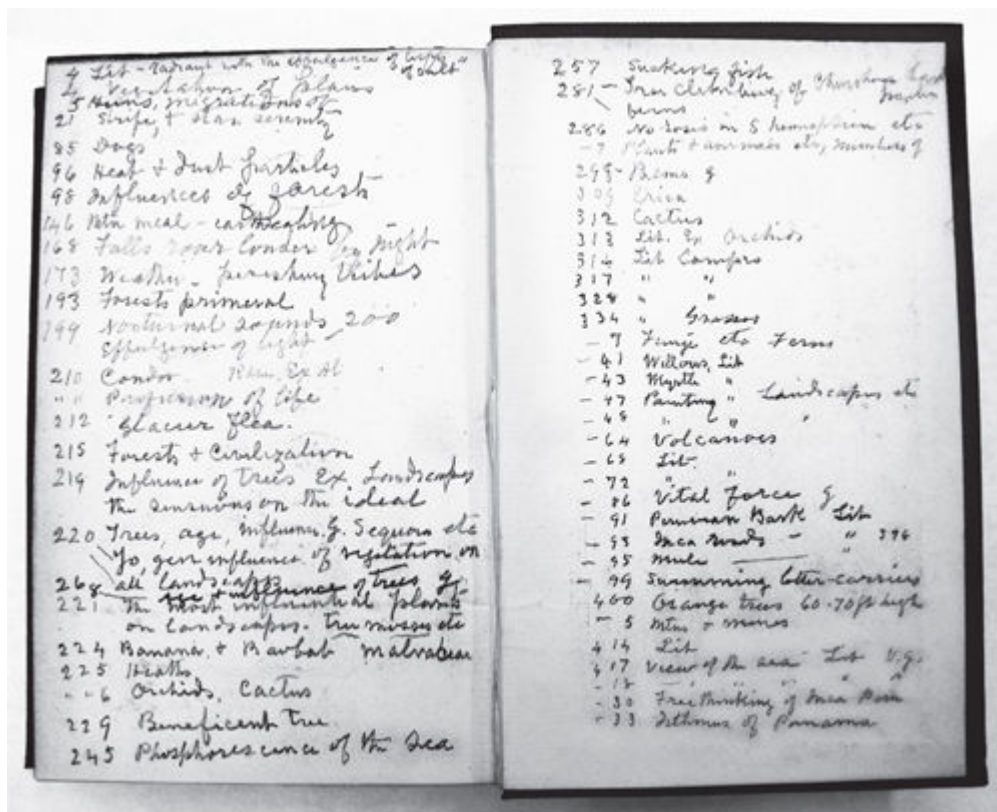 4 Lit - radiant with the effulgence of light
of salt"
4 Vegetation of plains
5 Huns, migrations of
21 Strife, & star serenity
85 Dogs
96 Heat & dust particles
98 Influences of forest
146 meal - earth eating
168 Falls roar louder by night
173 Weather - perishing tribes
193 Forests primeval
199 Nocturnal sounds 200
Effulgence of light
210 Condor
" " Profusion of life
212 Glacier flea.
215 Forests & Civilization
219 Influence of trees Ex. Landscapes
the sensuous on the ideal
220 Trees, age, influence, G. Sequoia etc
To, gen influence of vegetation on
all landscapes
268 age & influence of trees g
221 The most influential plants
on landscapes. tree mosses etc
224 Banana, & Baobab malvaceae
225 Heaths
- - 6 Orchids, Cactus
229 Beneficent tree
245 Phosphorescence of the Sea
257 Sucking fish
281 - Tree climbing of
ferns
286 No roses in S hemisphere etc
- 7 Plants & animals etc, numbers of
309 Erica
312 Cactus
313 Lit. Ex Orchids
314 Lit Compos
317 " "
328 " "
334 " Grasses
- 7 Fungi etc Ferns
- 41 Willows, Lit
- 43 Myrtle "
- 47 Painting " Landscapes etc
- 48 " " "
- 64 Volcanoes
- 68 Lit.
- 72 "
- 86 Vital force g
- 91 Peruvian Bark Lit
- 93 Inca roads - " 396
- 95 Mule
- 99 Swimming letter-carriers
400 Orange trees 60-70 ft high
- 5 Mtns & mines
414 Lit
417 View of the sea Lit V.g.
- 18 " "
- 30 Free thinking of Inca
- 33 Isthmus of Panama